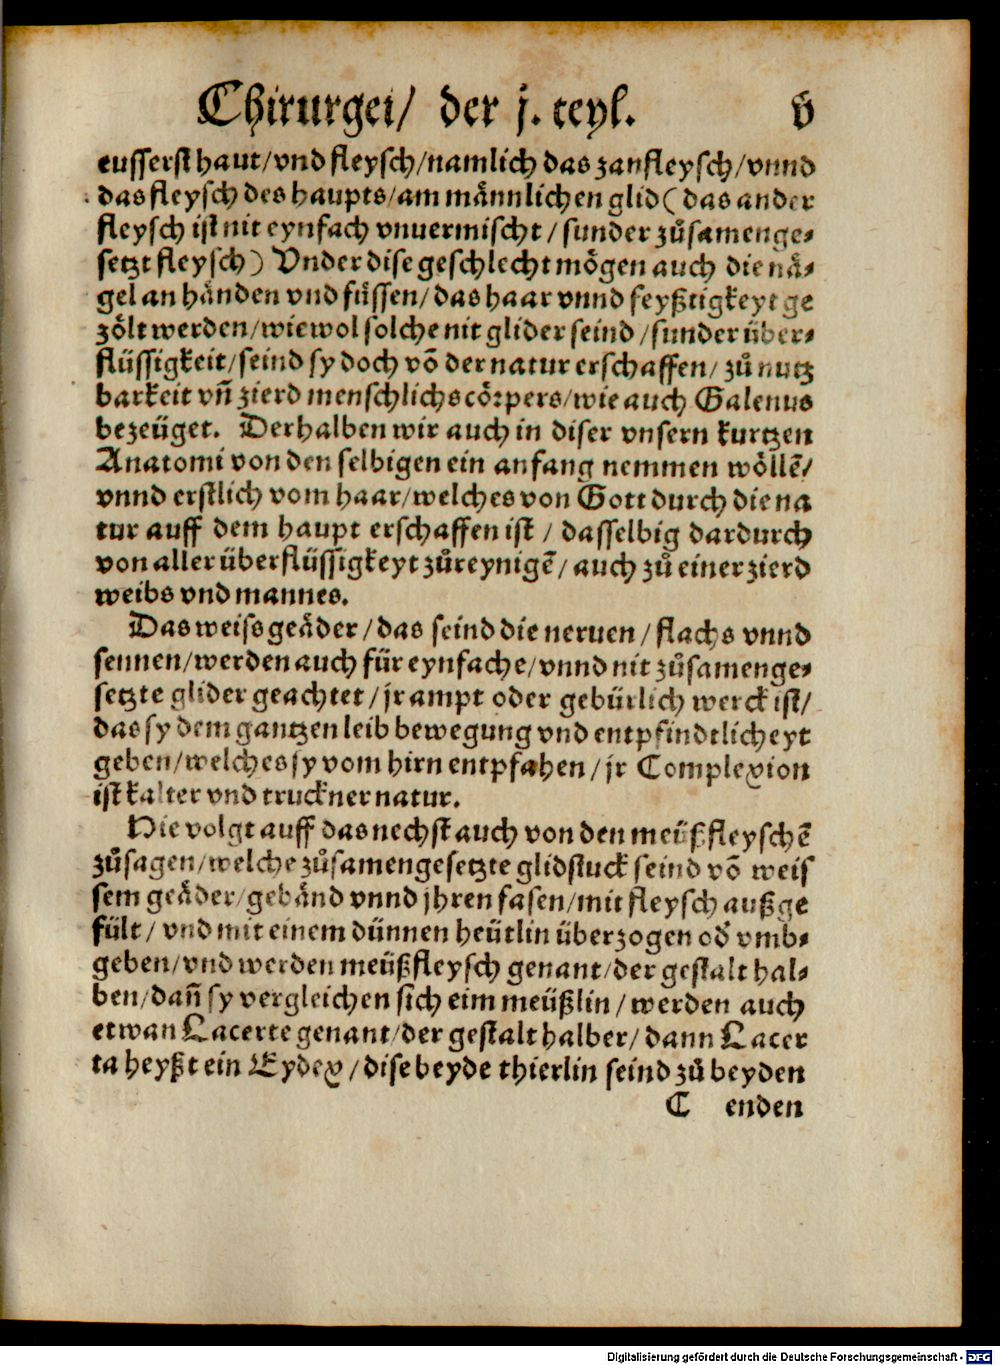 Chirurgei/ der j. teyl. v
eusserst haut/vnd fleysch/namlich das zanfleysch/vnnd
das fleysch des haupts/am mãnnlichen glid (das ander
fleysch ist nit eynfach vnuermischt/sunder zůsamenge⸗
setzt fleysch) Vnder dise geschlecht mögen auch die nä⸗
gel an händen vnd füssen/das haar vnnd feyßtigkeyt ge
zölt werden/wiewol solche nit glider seind/sunder über⸗
flüssigkeit/seind sy doch võ der natur erschaffen/zů nutz
barkeit vñ zierd menschlichs cörpers/wie auch Galenus
bezeüget. Derhalben wir auch in diser vnsern kurtzen
Anatomi von den selbigen ein anfang nemmen wöllẽ/
vnnd erstlich vom haar/welches von Gott durch die na
tur auff dem haupt erschaffen ist/ dasselbig dardurch
von aller überflüssigkeyt zůreynigẽ/auch zů einer zierd
weibs vnd mannes.
Das weiss geäder/das seind die neruen/flachs vnnd
sennen/werden auch für eynfache/vnnd nit zůsamenge⸗
setzte glider geachtet/jr ampt oder gebürlich werck ist/
das sy dem gantzen leib bewegung vnd entpfindtlicheyt
geben/welches sy vom hirn entpfahen/jr Complexion
ist kalter vnd truckner natur.
Hie volgt auff das nechst auch von den meüßfleyschẽ
zůsagen/welche zůsamengesetzte glidstuck seind võ weis
sem geäder/gebänd vnnd jhren fasen/mit fleysch außge
fült/ vnd mit einem dünnen heütlin überzogen od̕ vmb⸗
geben/vnd werden meüßfleysch genant/der gestalt hal⸗
ben/dañ sy vergleichen sich eim meüßlin/werden auch
etwan Lacerte genant/der gestalt halber/dann Lacer
ta heyßt ein Eydex/dise beyde thierlin seind zů beyden
C enden
Digitalisierung gefördert durch die Deutsche Forschungsgemeinschaft - DFG